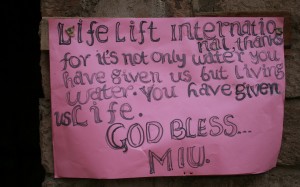 Life Lift Internatio
nal, thanks
for it's not only water you
have given us but Living
water. You have given
us Life.
GOD BLESS...
MIU.